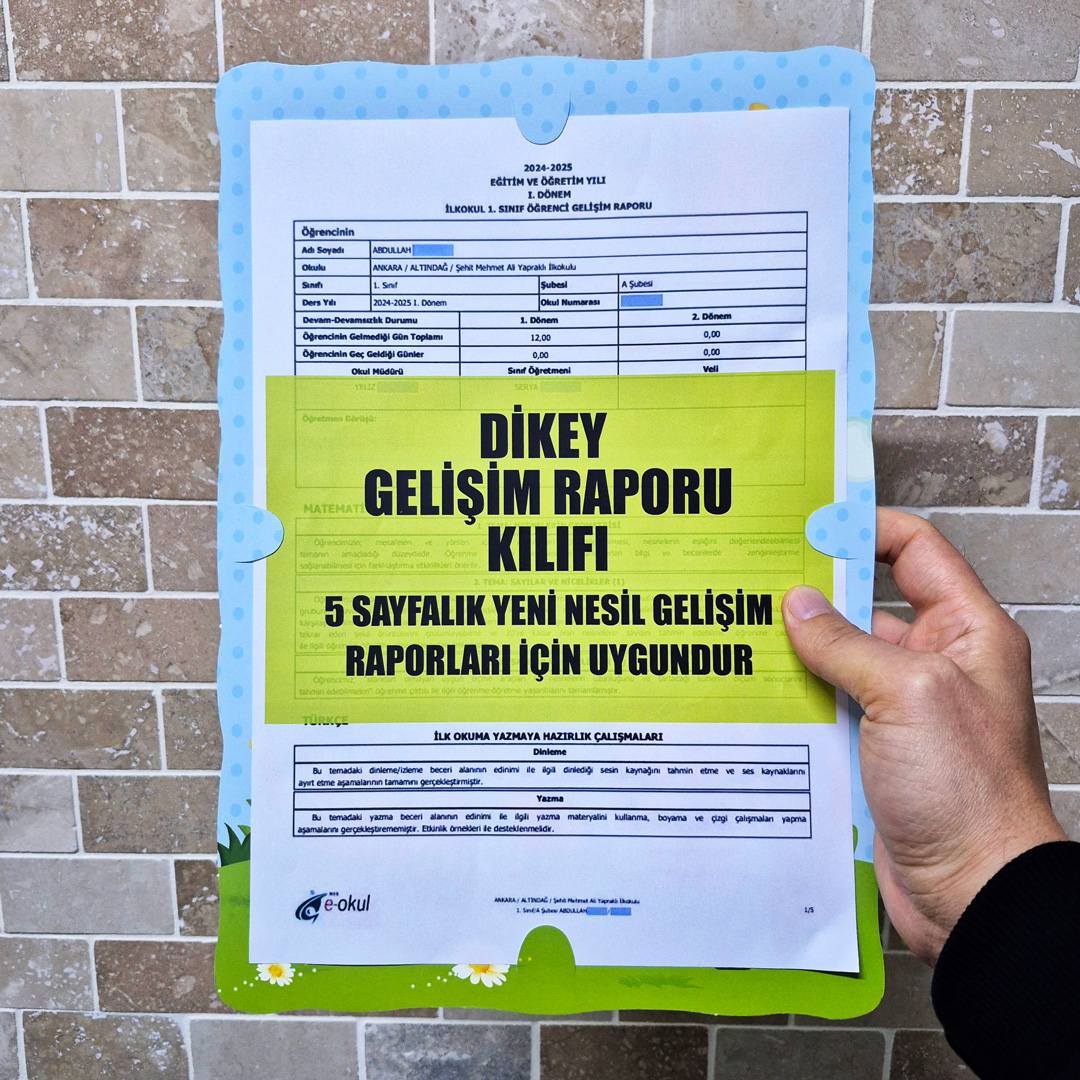 2024-2025
EĞİTİM VE ÖĞRETİM YILI
I. DÖNEM
İLKOKUL 1. SINIF ÖĞRENCİ GELİŞİM RAPORU
Öğrencinin
Adı Soyadı ABDULLAH
Okulu ANKARA / ALTINDAĞ / Şehit Mehmet Ali Yapraklı İlkokulu
Sınıfı 1. Sınıf Şubesi A Şubesi
Ders Yılı 2024-2025 I. Dönem Okul Numarası
Devam-Devamsızlık Durumu 1. Dönem 2. Dönem
Öğrencinin Gelmediği Gün Toplamı 12,00 0,00
Öğrencinin Geç Geldiği Günler 0,00 0,00
Okul Müdürü Sınıf Öğretmeni Veli
YELİZ SERYA
Öğretmen Görüşü:
DİKEY
GELİŞİM RAPORU
KILIFI
5 SAYFALIK YENİ NESİL GELİŞİM
RAPORLARI İÇİN UYGUNDUR
MATEMATİ
2. TEMA: SAYILAR VE NİCELİKLER (1)
TÜRKÇE
İLK OKUMA YAZMAYA HAZIRLIK ÇALIŞMALARI
Dinleme
Bu temadaki dinleme/izleme beceri alanının edinimi ile ilgili dinlediği sesin kaynağını tahmin etme ve ses kaynaklarını
ayırt etme aşamalarının tamamını gerçekleştirmiştir.
Yazma
Bu temadaki yazma beceri alanının edinimi ile ilgili yazma materyalini kullanma, boyama ve çizgi çalışmaları yapma
aşamalarını gerçekleştirememiştir. Etkinlik örnekleri ile desteklenmelidir.
MEB
e-okul
ANKARA / ALTINDAĞ / Şehit Mehmet Ali Yapraklı İlkokulu
1. Sınıf/A Şubesi ABDULLAH /
1/5